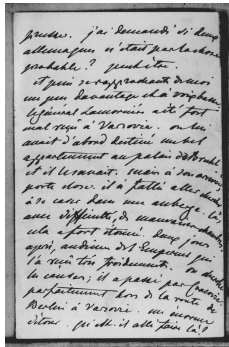 prusse. j'ai demandé si deux
allemagnes n'était pas la chose
probable ? peut être.
et puis se rapprochant de moi
un peu davantage et à voix basse :
le général Lamoricière a été fort
mal reçu à Varsovie. on lui
avait d'abord destiné un bel
appartement au palais
et il le savait. mais à son arrivée
porte close. il a fallu aller
se caser dans une auberge. là,
avec difficulté, de mauvaises chambres,
cela a fort étonné. deux jours
après, audience de l'Empereur qui
l'a reçu très froidement. on
en causer ; il a passé par
parfaitement hors de la route de
Berlin à Varsovie. un
qu'est-il allé faire là ?